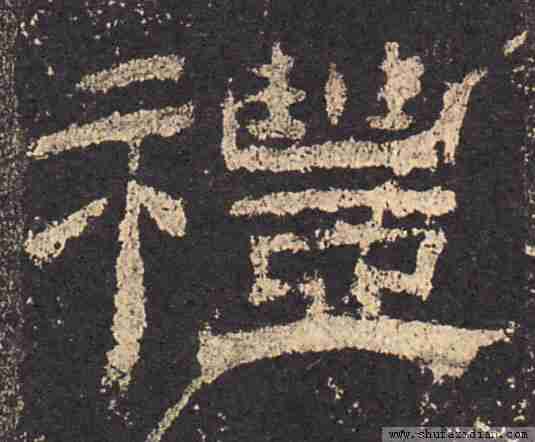 禮
www.shufazidian.com